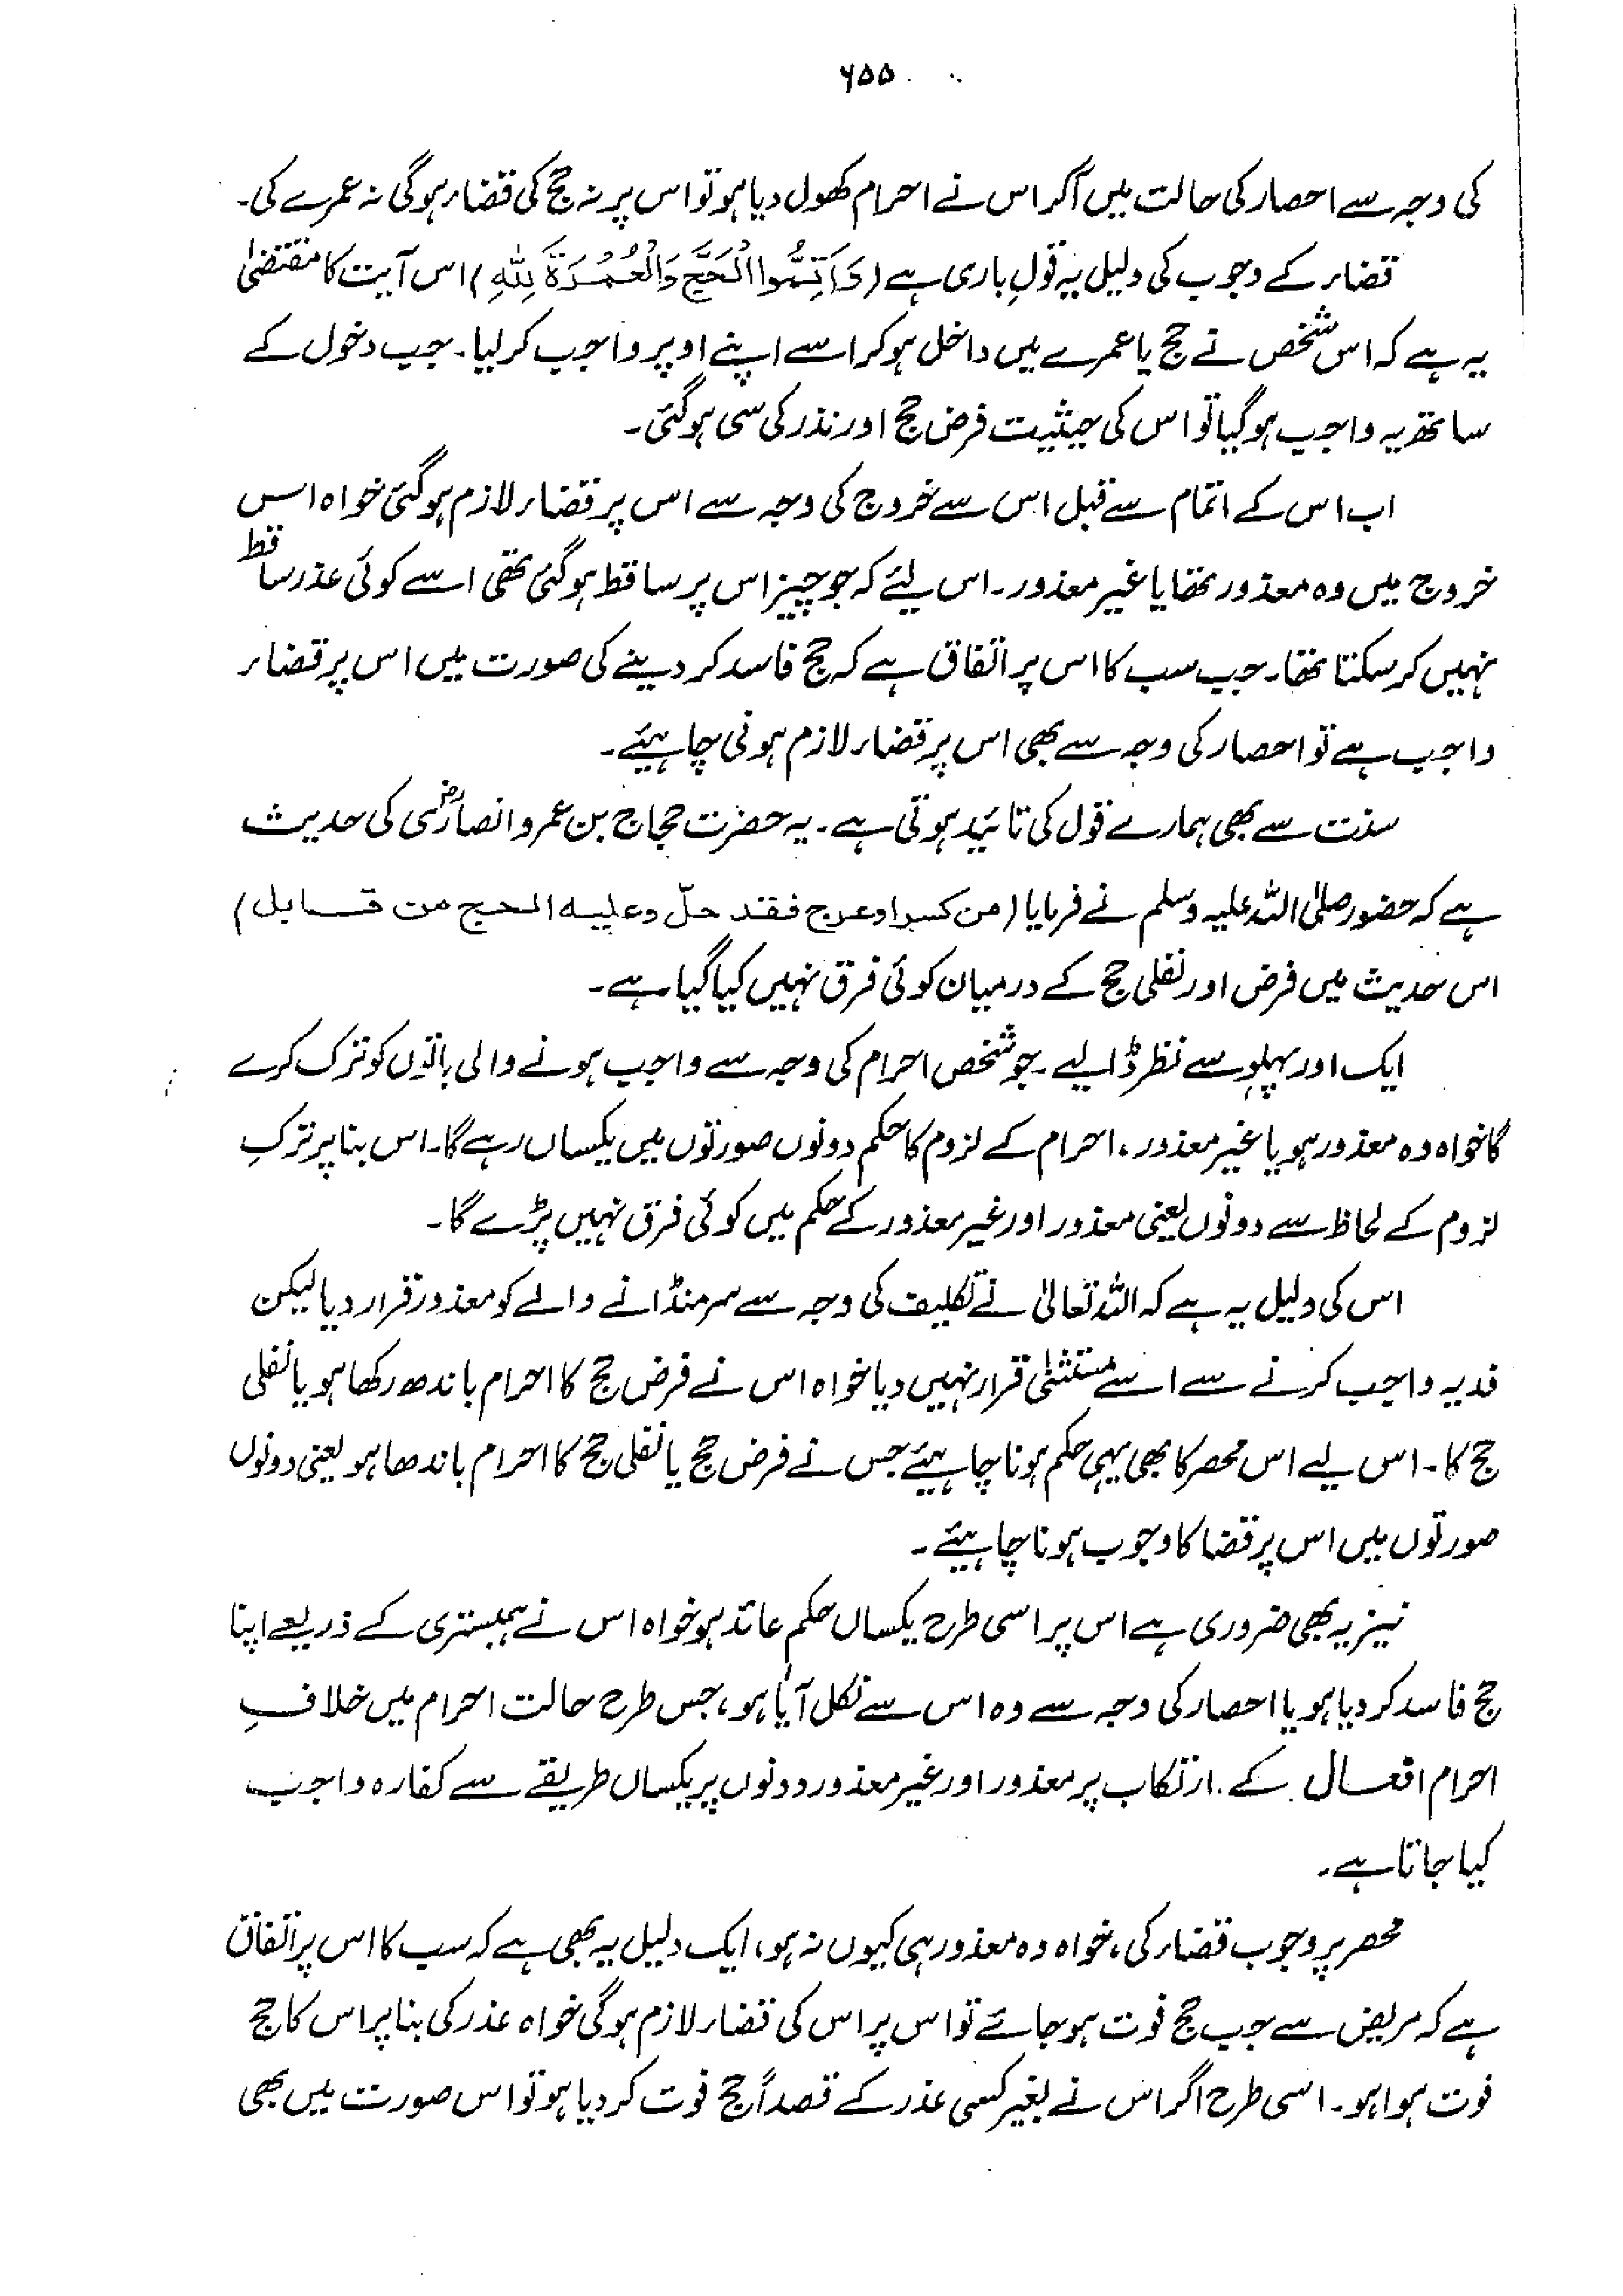 ۶۵۵
کی وجہ سے احصار کی حالت میں آکر اس نے احرام کھول دیا ہو تو اس پر نہ حج کی قضاء ہوگی نہ عمرے کی۔
قضاء کے وجوب کی دلیل یہ قولِ باری ہے (وَاَتِمُّوا الْحَجَّ وَالْعُمْرَةَ لِلّٰهِ) اس آیت کا مقتضیٰ
یہ ہے کہ اس شخص نے حج یا عمرے میں داخل ہو کر اسے اپنے اوپر واجب کر لیا۔ جب دخول کے
ساتھ یہ واجب ہوگیا تو اس کی حیثیت فرض حج اور نذر کی سی ہوگئی۔
اب اس کے اتمام سے قبل اس سے خروج کی وجہ سے اس پر قضاء لازم ہوگئی خواہ اس
خروج میں وہ معذور تھا یا غیر معذور۔ اس لیئے کہ جو چیز اس پر ساقط ہوگئی تھی اسے کوئی عذر ساقط
نہیں کر سکتا تھا۔ جب سب کا اس پر اتفاق ہے کہ حج فاسد کر دینے کی صورت میں اس پر قضاء
واجب ہے تو احصار کی وجہ سے بھی اس پر قضاء لازم ہونی چاہیئے۔
سنت سے بھی ہمارے قول کی تائید ہوتی ہے۔ یہ حضرت حجاج بن عمرو انصاریؓ کی حدیث
ہے کہ حضور صلی اللہ علیہ وسلم نے فرمایا (من کسر او عرج فقد حلّ وعلیه الحج من قابل)
اس حدیث میں فرض اور نفلی حج کے درمیان کوئی فرق نہیں کیا گیا ہے۔
ایک اور پہلو سے نظر ڈالیے۔ جو شخص احرام کی وجہ سے واجب ہونے والی باتوں کو ترک کرے
گا خواہ وہ معذور ہو یا غیر معذور، احرام کے لزوم کا حکم دونوں صورتوں میں یکساں رہے گا۔ اس بنا پر ترکِ
لزوم کے لحاظ سے دونوں یعنی معذور اور غیر معذور کے حکم میں کوئی فرق نہیں پڑے گا۔
اس کی دلیل یہ ہے کہ اللہ تعالیٰ نے تکلیف کی وجہ سے سر منڈانے والے کو معذور قرار دیا لیکن
فدیہ واجب کرنے سے اسے مستثنیٰ قرار نہیں دیا خواہ اس نے فرض حج کا احرام باندھ رکھا ہو یا نفلی
حج کا۔ اس لیے اس محصر کا بھی یہی حکم ہونا چاہیئے جس نے فرض حج یا نفلی حج کا احرام باندھا ہو یعنی دونوں
صورتوں میں اس پر قضا کا وجوب ہونا چاہیئے۔
نیز یہ بھی ضروری ہے اس پر اسی طرح یکساں حکم عائد ہو خواہ اس نے ہمبستری کے ذریعے اپنا
حج فاسد کر دیا ہو یا احصار کی وجہ سے وہ اس سے نکل آیا ہو، جس طرح حالت احرام میں خلافِ
احرام افعال کے ارتکاب پر معذور اور غیر معذور دونوں پر یکساں طریقے سے کفارہ واجب
کیا جاتا ہے۔
محصر پر وجوب قضاء کی، خواہ وہ معذور ہی کیوں نہ ہو، ایک دلیل یہ بھی ہے کہ سب کا اس پر اتفاق
ہے کہ مریض سے جب حج فوت ہو جائے تو اس پر اس کی قضاء لازم ہوگی خواہ عذر کی بنا پر اس کا حج
فوت ہوا ہو۔ اسی طرح اگر اس نے بغیر کسی عذر کے قصداً حج فوت کر دیا ہو تو اس صورت میں بھی